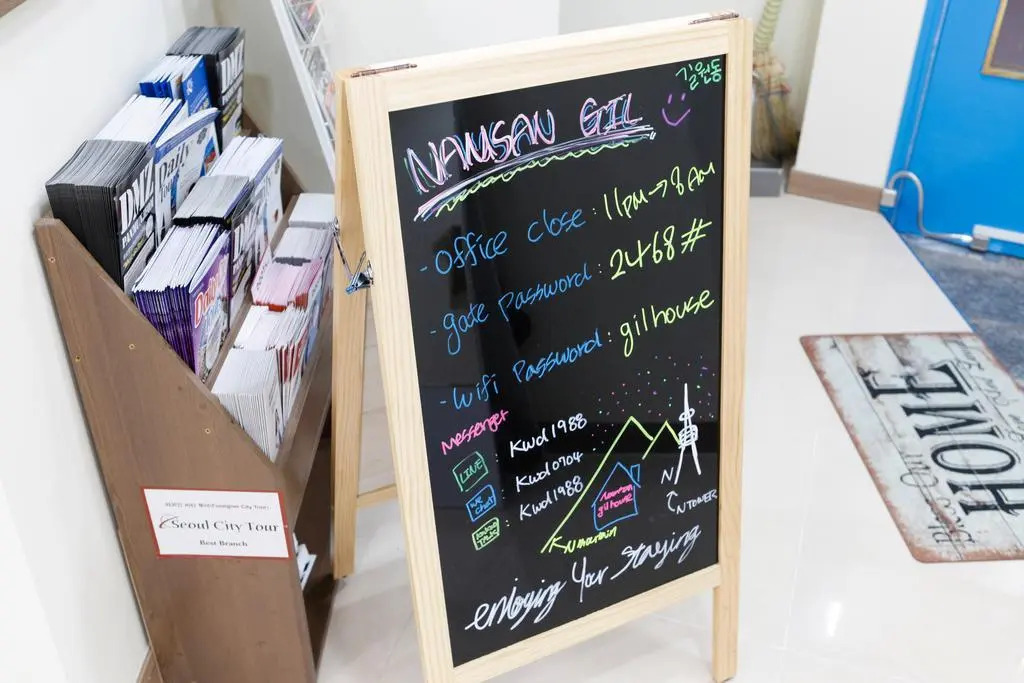 김원동
NAMSAN GIL
- office close : 11pm → 8AM
- gate password : 2468#
- wifi password : gilhouse
Messenger
LINE : Kwd1988
We chat : Kwd0704
kakao TALK : Kwd1988
namsan gilhouse
N Mountain
N TOWER
enjoying Your Staying
DMZ
Daily
DMZ
Seoul City Tour
Best Branch
HOME